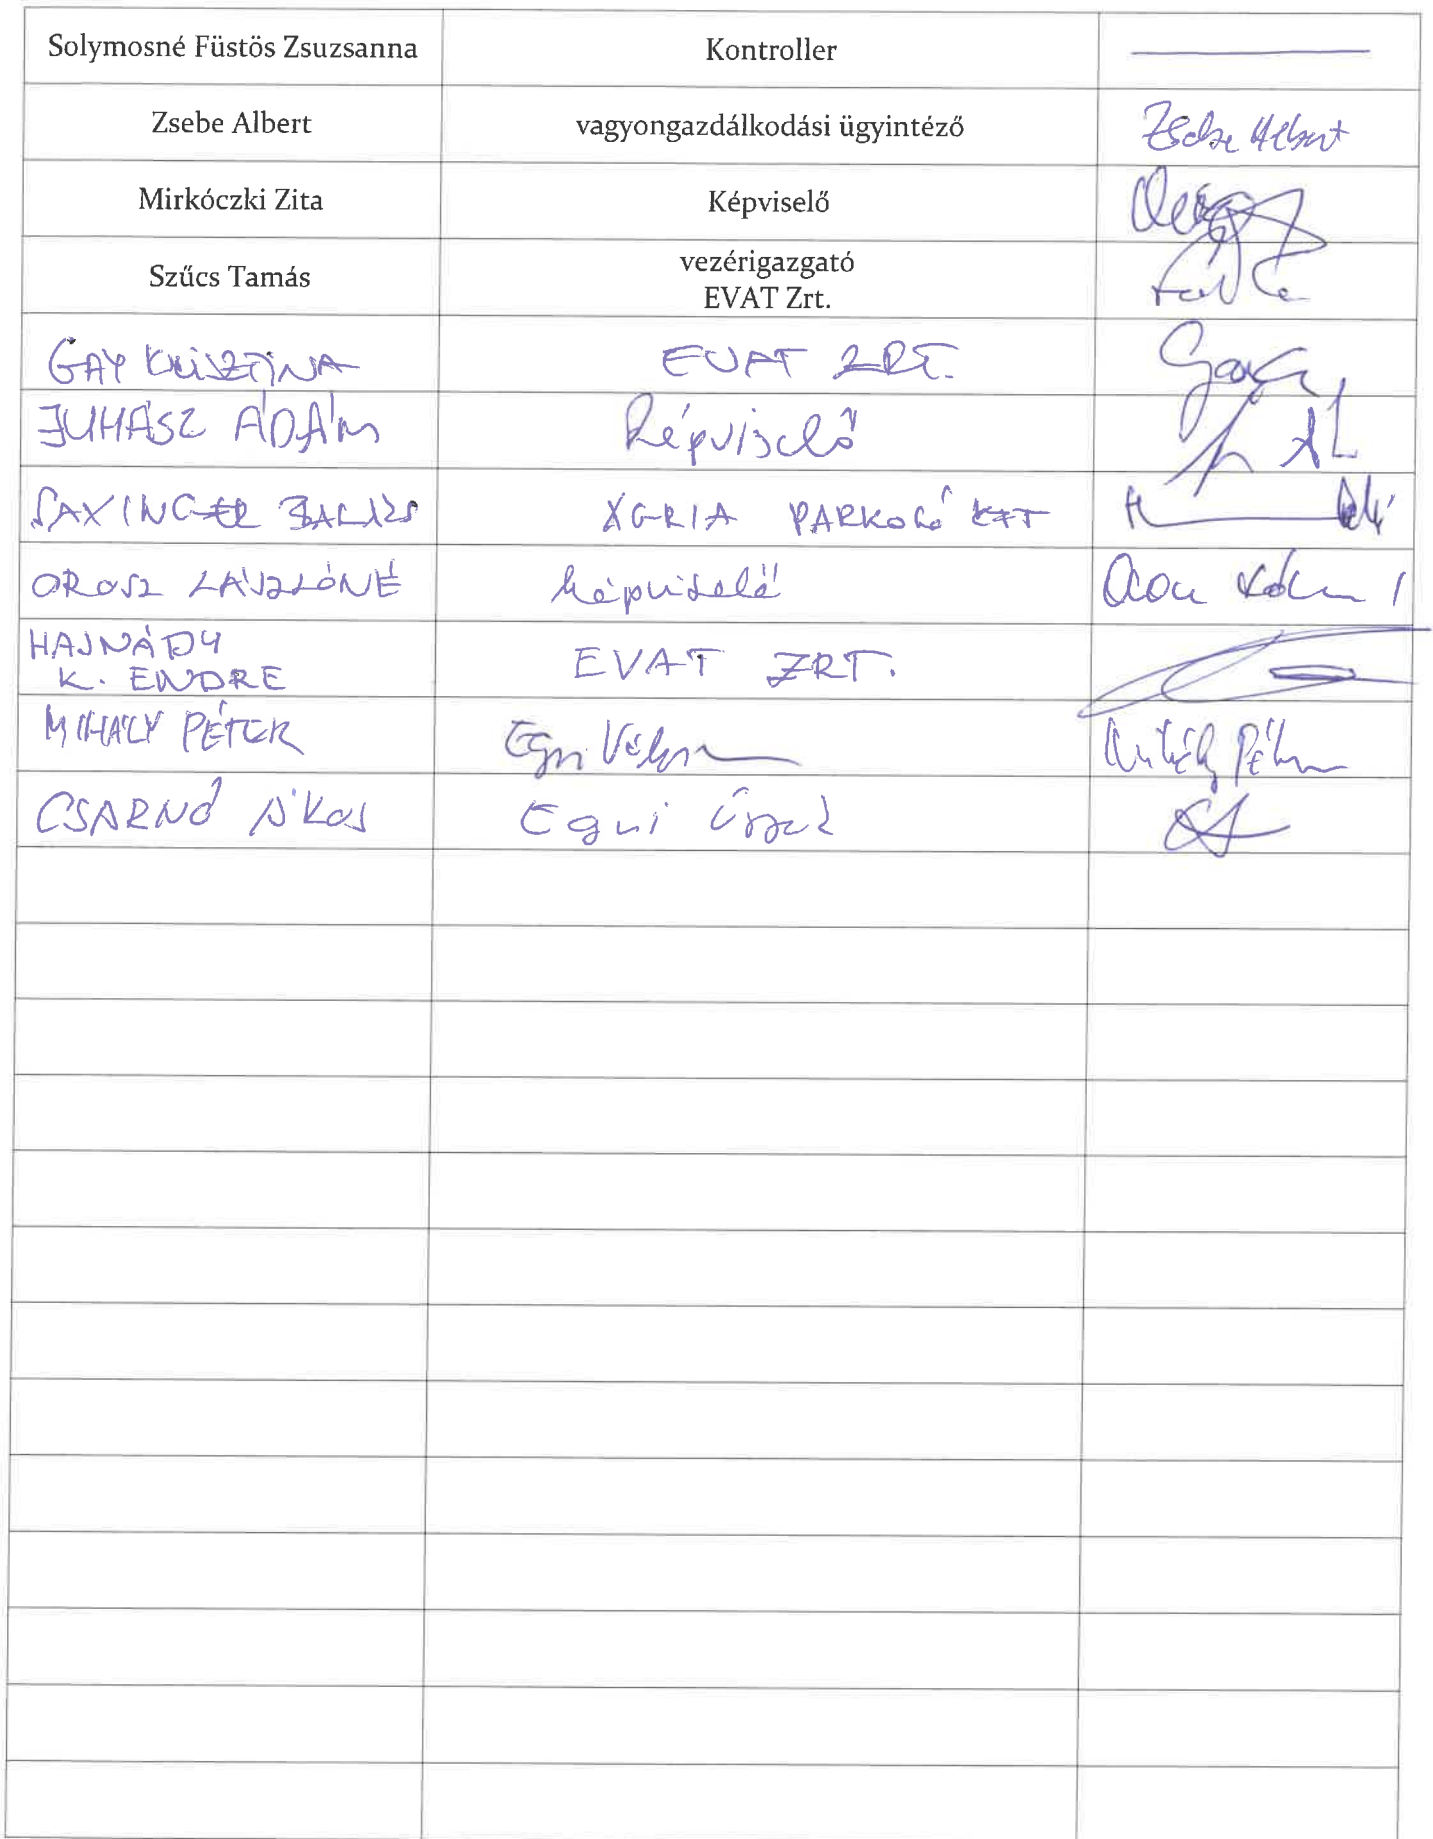 Solymosné Füstös Zsuzsanna Kontroller
Zsebe Albert vagyongazdálkodási ügyintéző Zsebe Albert
Mirkóczki Zita Képviselő
Szűcs Tamás vezérigazgató
EVAT Zrt.
GAY KRISZTINA EVAT ZRT.
JUHÁSZ ÁDÁM Képviselő
SAXINGER BALÁZS AGRIA PARKOLÓ KFT
OROSZ LÁSZLÓNÉ képviselő
HAJNÁDY
K. ENDRE EVAT ZRT.
MIHÁLY PÉTER Egri Mihály Péter
CSARNÓ ÁKOS Egri